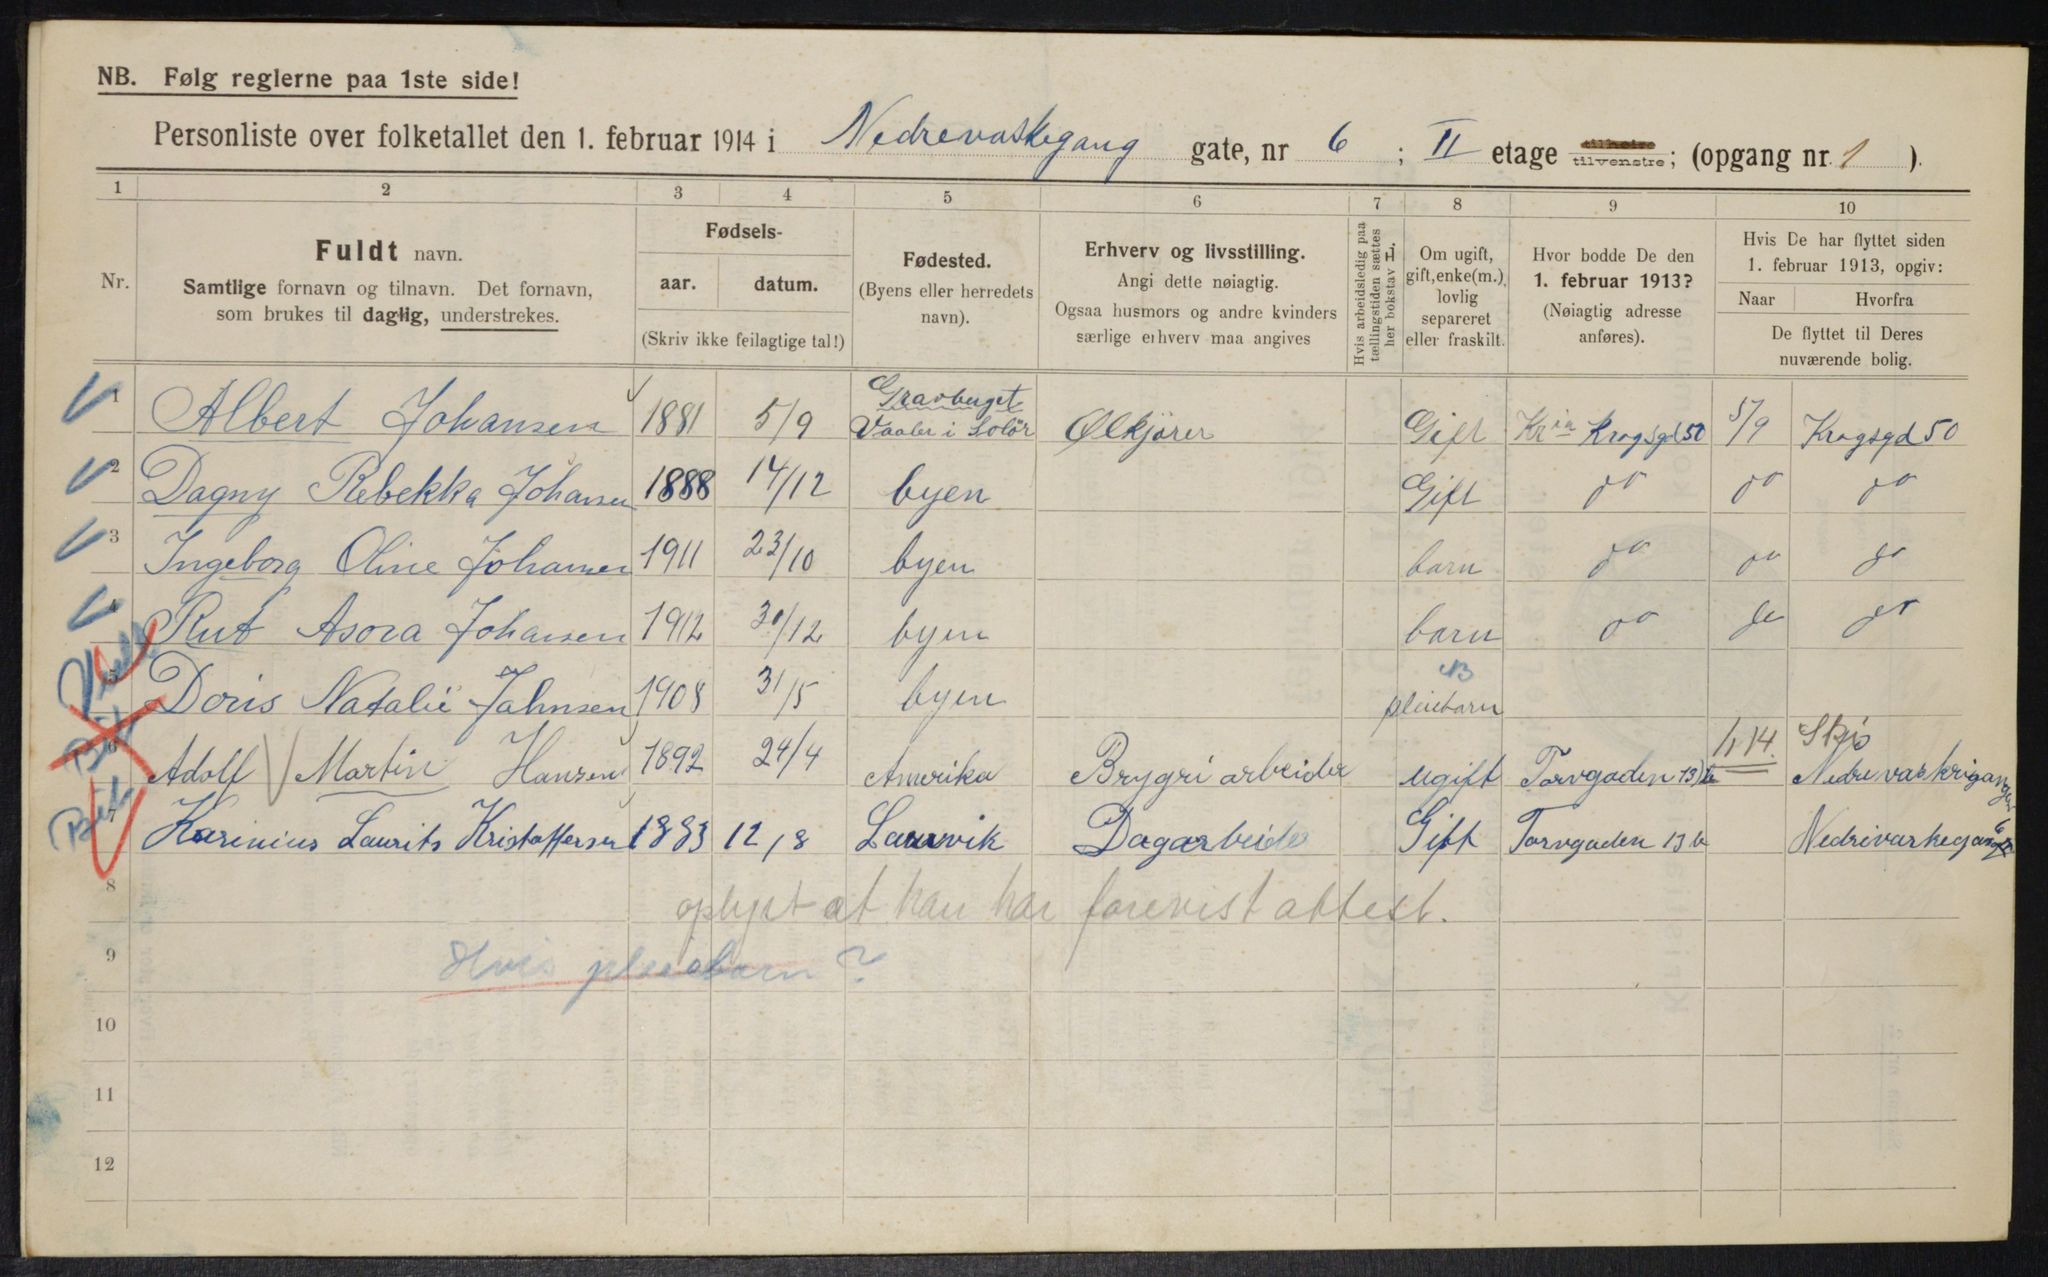 NB. Følg reglerne paa 1ste side!
Personliste over folketallet den 1. februar 1914 i Nedrevaskegang gate, nr 6 ; II etage tilhøire tilvenstre; (opgang nr. 1 ).
1 2 3 4 5 6 7 8 9 10
Nr.
Fuldt navn.
Samtlige fornavn og tilnavn. Det fornavn,
som brukes til daglig, understrekes.
Fødsels-
aar. datum.
(Skriv ikke feilagtige tal!)
Fødested.
(Byens eller herredets
navn).
Erhverv og livsstilling.
Angi dette nøiagtig.
Ogsaa husmors og andre kvinders
særlige erhverv maa angives
Hvis arbeidsledig paa
tællingstiden sættes
her bokstav L.
Om ugift,
gift, enke(m.),
lovlig
separeret
eller fraskilt.
Hvor bodde De den
1. februar 1913?
(Nøiagtig adresse
anføres).
Hvis De har flyttet siden
1. februar 1913, opgiv:
Naar Hvorfra
De flyttet til Deres
nuværende bolig.
1 Albert Johansen 1881 5/9 Gravberget Vaaler i Solør Ølkjører Gift Kria Krogsgd 50 5/9 Krogsgd 50
2 Dagny Rebekka Johansen 1888 14/12 byen Gift do do do
3 Ingeborg Oline Johansen 1911 23/10 byen barn do do do
4 Rut Asora Johansen 1912 30/12 byen barn do do do
5 Doris Natalie Jahnsen 1908 31/5 byen NB pleiebarn
6 Adolf Martin Hansen 1892 24/4 Amerika Brygri arbeider ugift Torvgaden 13 b 1/1 14 Nedrevaskrigangen 6
7 Karinius Laurits Kristoffersen 1883 12/8 Laurvik Dagarbeider Gift Torvgaden 13 b Nedrivarkegang
8 oplyst at han har forevist attest.
9 Hvis pleiebarn?
10
11
12